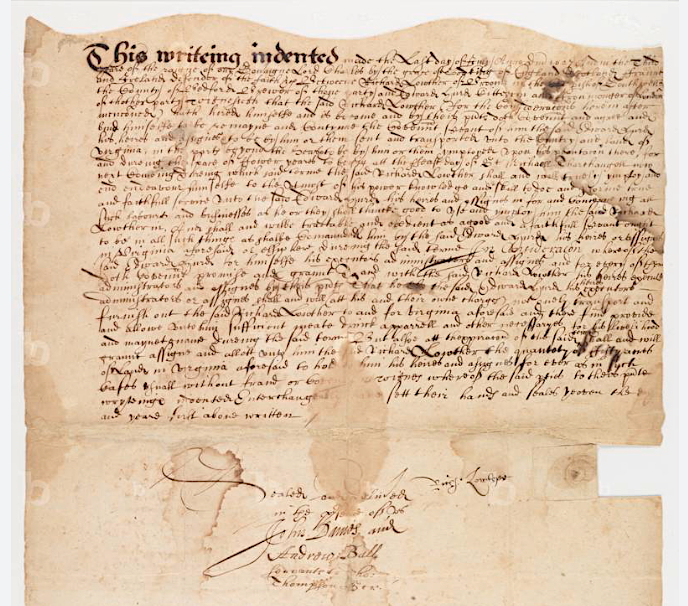 This writeing indented made the Last day of July Anno Dni 1627 and in the
yeare of the raigne of our Soveraigne Lord Charles by the grace of God King of England Scotland France
and Ireland defender of the faith &c Betweene Richard Lowther of
the County of Bedford of thone party and Edward Hurd Cittizen and Iremonger of London
of thother party Witnesseth that the said Richard Lowther for the Consideracons herein after
menconed hath hired himselfe and is become and by theis pnts doth Covenant and agree and
bind himselfe to be remayne and Continue the Covenant Servant of him the said Edward Hurd
his heires and assignes to be by him or them sent and transported unto the Country and land of
Virginia in the parts beyond the Seas to be by him or them imployed upon his plantacon there for
and during the space of fower yeares to begin at the feast day of St Michaell Tharchangell now
next Coming during which said terme the said Richard Lowther shall and will truely imploy and
endeavour himselfe to the utmost of his power knowledge and skill to doe and performe true
and faithfull service unto the said Edward Hurd his heires and assignes in for and Concerning all
such labours and businesses as he or they shall thinke good to use and imploy him the said Richard
Lowther in, And shall and wilbe tractable and obedient as a good and faithfull Servant ought
to be in all such things as shalbe Comaunded him by the said Edward Hurd his heires or assignes
in Virginia aforesaid or elsewhere during the said terme In Consideracon whereof the
said Edward Hurd for himselfe his executors administrators and assignes and for every of them
doth Covenant promise and graunt to and with the said Richard Lowther his heires executors
administrators and assignes by theis pnts That he the said Edward Hurd his heires executors
administrators or assignes shall and will att his and their owne charges not onely transport and
furnish out the said Richard Lowther to and for Virginia aforesaid and there find provide
and allowe unto him sufficient meate drinck apparrell and other necessaryes for his livelihood
and mayntenance during the said terme But alsoe att the of the said shall and will
graunt assigne and allott unto him the said Richard Lowther the quantity of fifty acres
of Land in Virginia aforesaid to hold to him his heires and assignes for ever as in such
Cases usuall without fraud or whereof the said pties to theis pnte
writeings indented Enterchang sett their hands and seales yeoven the day
and yeare first above written
Rich: Lowther
Sealed and Delivered
in the of us
John Bunes and
Andrew Ball
servants to the
Thompson Scr.